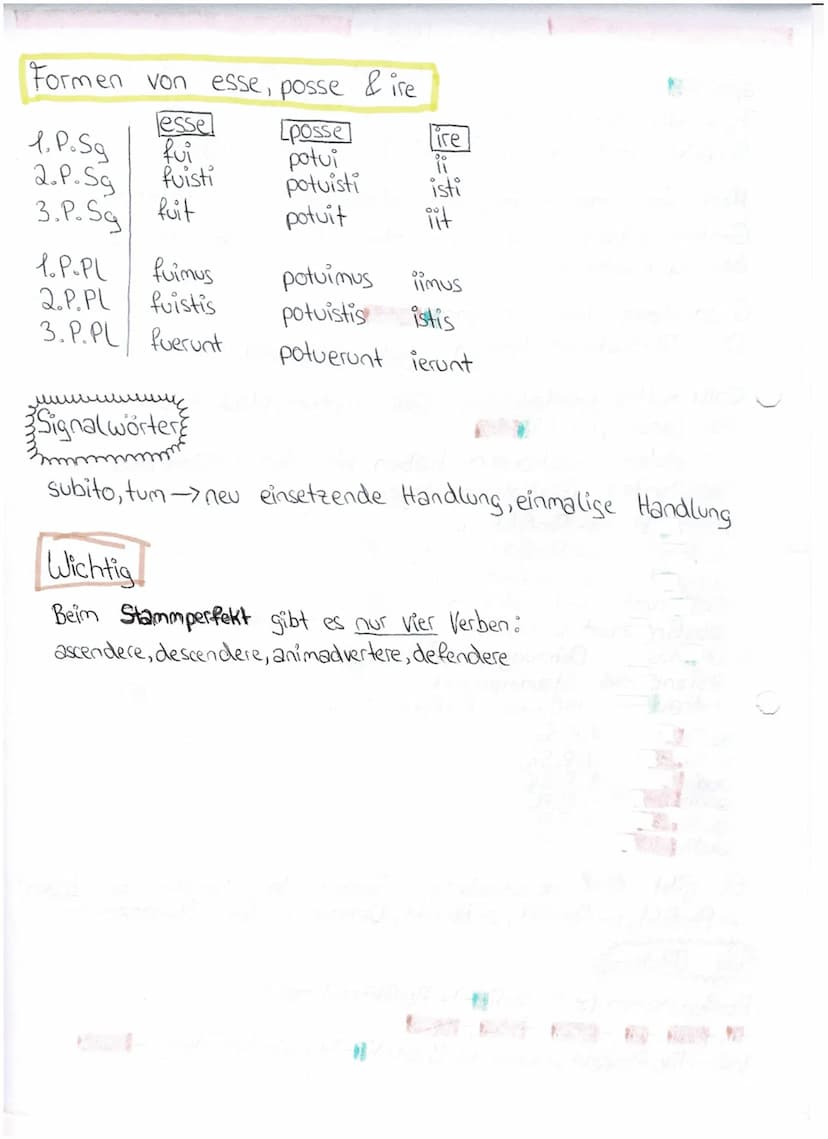 Formen von esse, posse & ire
esse posse ire
1.P.Sg fui potui ii
2.P.Sg fuisti potuisti isti
3.P.Sg fuit potuit iit
1.P.PL fuimus potuimus iimus
2.P.PL fuistis potuistis istis
3.P.PL fuerunt potuerunt ierunt
Signalwörter
subito, tum → neu einsetzende Handlung, einmalige Handlung
Wichtig
Beim Stammperfekt gibt es nur vier Verben:
ascendere, descendere, animadvertere, defendere